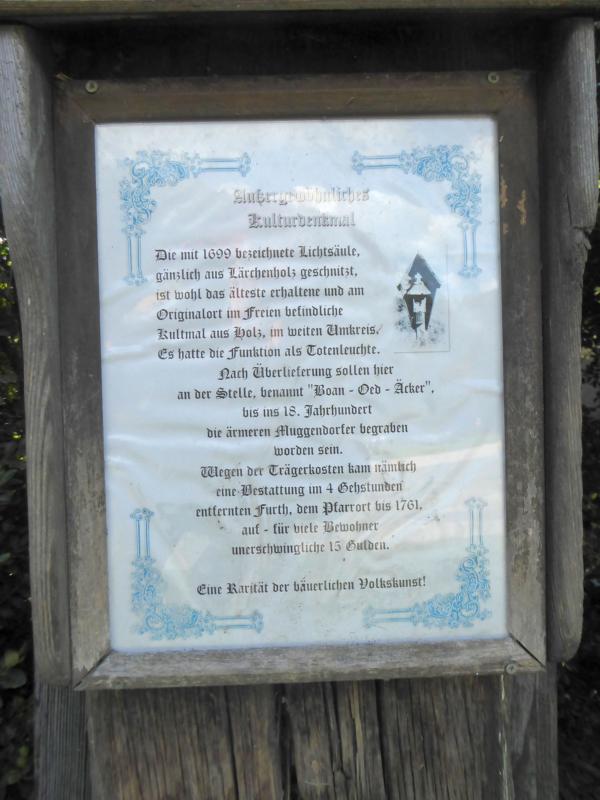 Außergewöhnliches
Kulturdenkmal
Die mit 1699 bezeichnete Lichtsäule,
gänzlich aus Lärchenholz geschnitzt,
ist wohl das älteste erhaltene und am
Originalort im Freien befindliche
Kultmal aus Holz, im weiten Umkreis.
Es hatte die Funktion als Totenleuchte.
Nach Überlieferung sollen hier
an der Stelle, benannt "Boan - Oed - Äcker",
bis ins 18. Jahrhundert
die ärmeren Muggendorfer begraben
worden sein.
Wegen der Trägerkosten kam nämlich
eine Bestattung im 4 Gehstunden
entfernten Furth, dem Pfarrort bis 1761,
auf - für viele Bewohner
unerschwingliche 15 Gulden.
Eine Rarität der bäuerlichen Volkskunst!